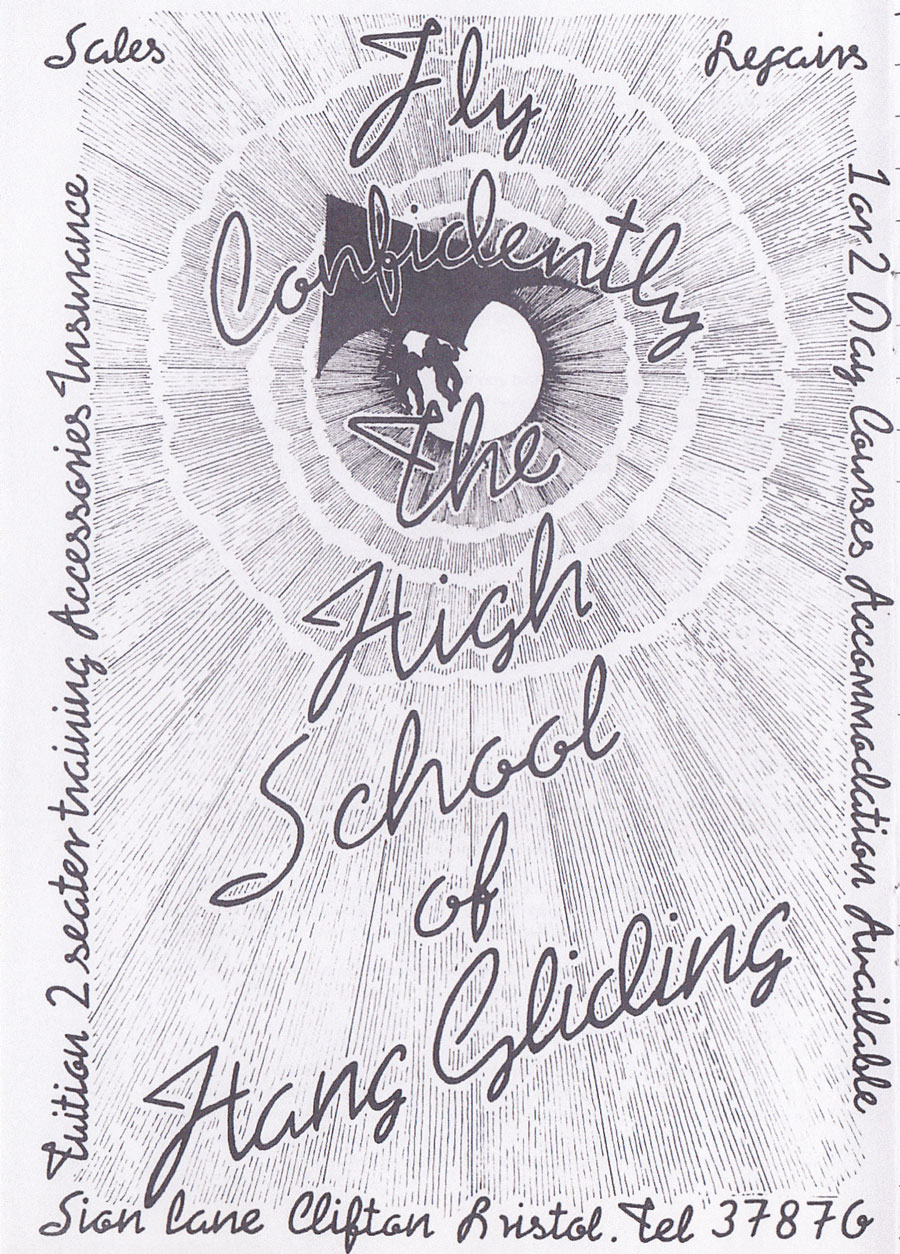 Sales
Repairs
Fly
Confidently
the
High
School
of
Hang Gliding
Tuition 2 seater training Accessories Insurance
1 or 2 Day Courses Accommodation Available
Sion Lane Clifton Bristol. Tel 37876